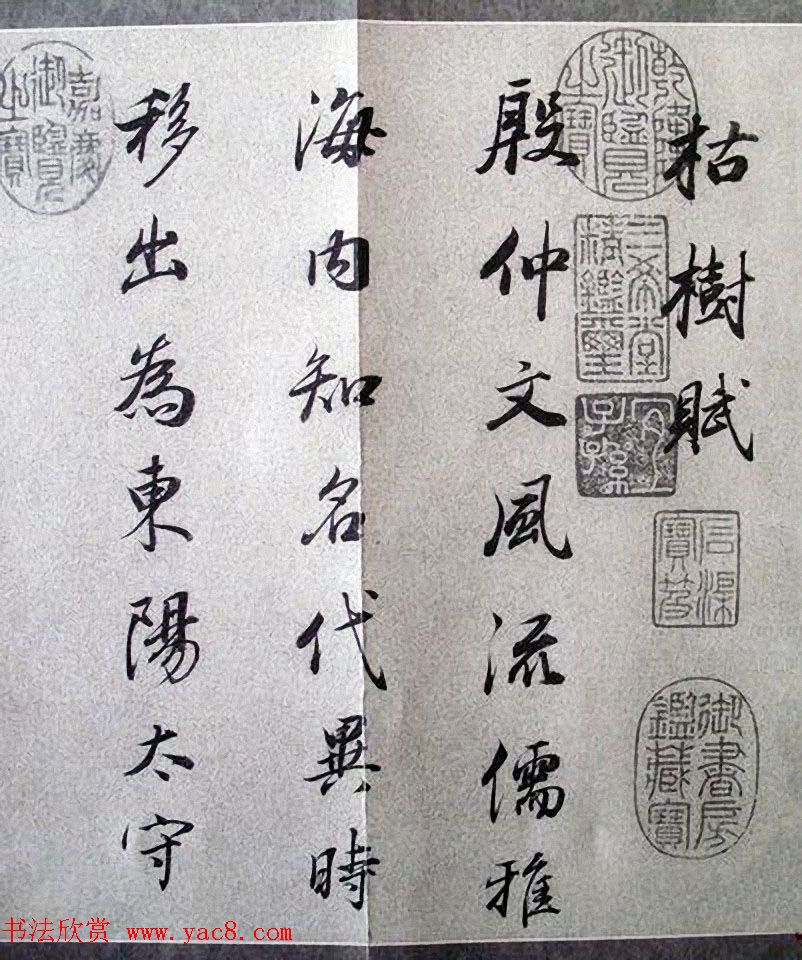 枯樹賦
殷仲文風流儒雅
海内知名代異時
移出為東陽太守
乾隆御覽之寶
三希堂精鑑璽
宜子孫
石渠寶笈
御書房鑑藏寶
嘉慶御覽之寶
书法欣赏 www.yac8.com